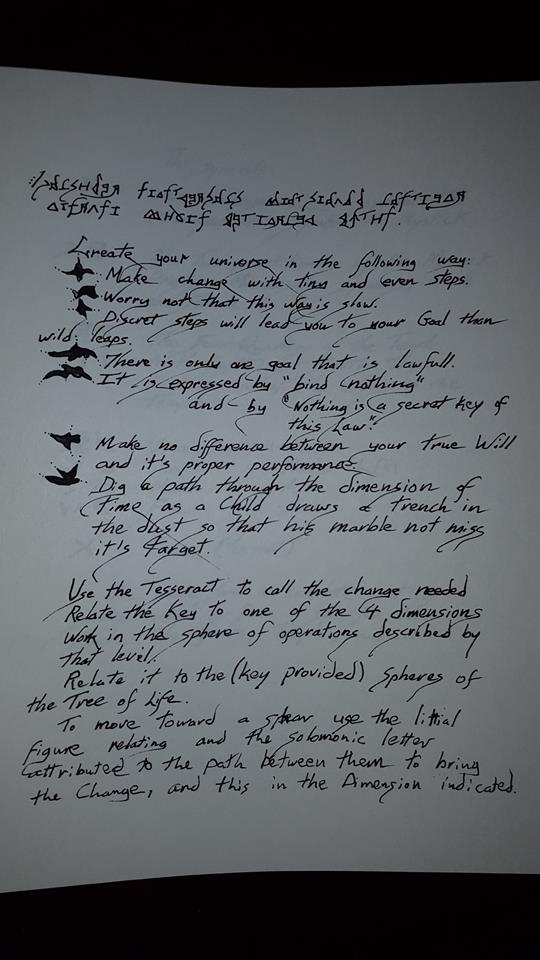 Create your universe in the following way:
Make change with tiny and even steps.
Worry not that this way is slow.
Discret steps will lead you to your Goal than
wild leaps.
There is only one goal that is lawfull.
It is expressed by "bind nothing"
and by "Nothing is a secret key of
this Law".
Make no difference between your True Will
and it's proper performance.
Dig a path through the dimension of
Time as a Child draws a trench in
the dust so that his marble not miss
it's target.
Use the Tesseract to call the change needed
Relate the Key to one of the 4 dimensions
Work in the sphere of operations described by
that level.
Relate it to the (key provided) Spheres of
the Tree of Life.
To move toward a use the
figure relating and the solomonic letter
attributed to the path between them to bring
the Change, and this in the Dimension indicated.